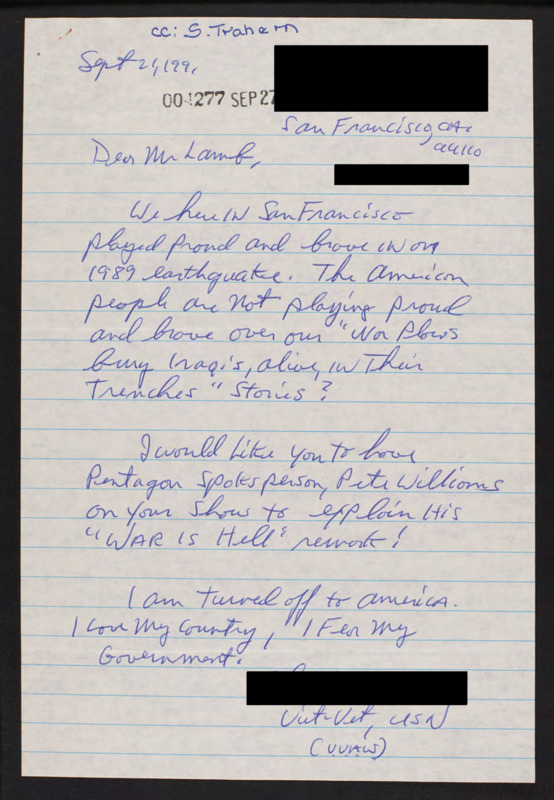 cc: S. Trahern
Sept 21, 1991
004277 SEP 27
San Francisco, CA.
Dear Mr Lamb,
We here IN San Francisco
played proud and brave in our
1989 earthquake. The American
people are Not playing proud
and brave over our "War Plows
bury Iraqi's, alive, in Their
Trenches" Stories?
I would like you to have
Pentagon Spokesperson, Pete Williams
on your show to explain His
"WAR IS Hell" remark!
I am turned off to america.
I Love My Country, I Fear My
Government.
Viet-Vet, USN
(VVAW)